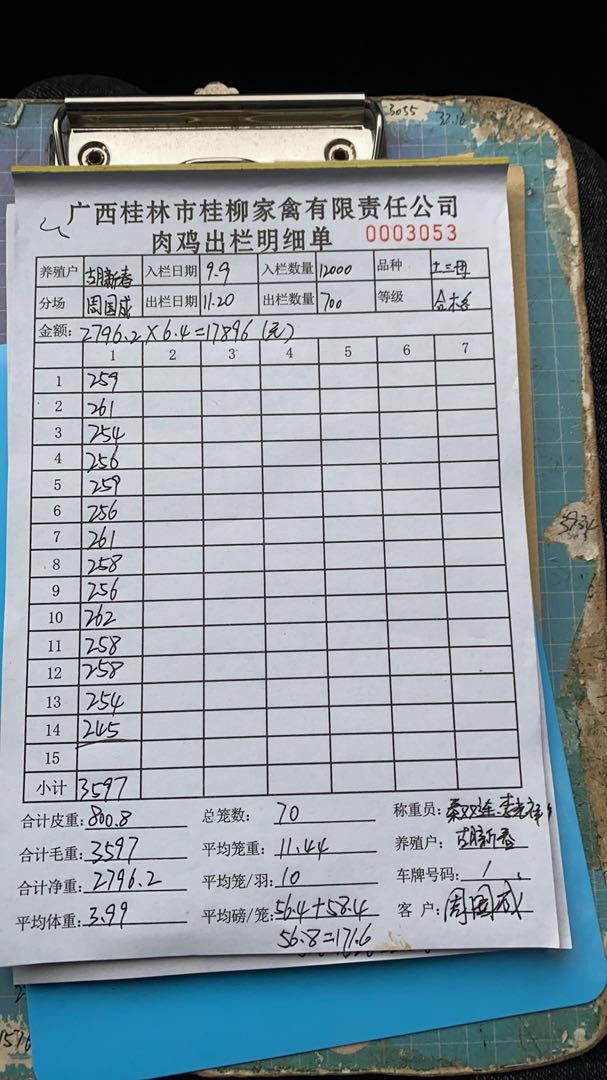 3055
32.18
广西桂林市桂柳家禽有限责任公司
肉鸡出栏明细单 0003053
养殖户 胡新春 入栏日期 9.9 入栏数量 12000 品种 土三母
分场 周国成 出栏日期 11.20 出栏数量 700 等级 合格
金额: 2796.2×6.4=17896(元)
1 2 3 4 5 6 7
1 259
2 261
3 254
4 256
5 259
6 256
7 261
8 258
9 256
10 262
11 258
12 258
13 254
14 245
15
小计 3597
合计皮重: 800.8 总笼数: 70 称重员:
合计毛重: 3597 平均笼重: 11.44 养殖户: 胡新春
合计净重: 2796.2 平均笼/羽: 10 车牌号码: /
平均体重: 3.99 平均磅/笼: 56.4+58.4 客 户: 周国成
56.8=171.6